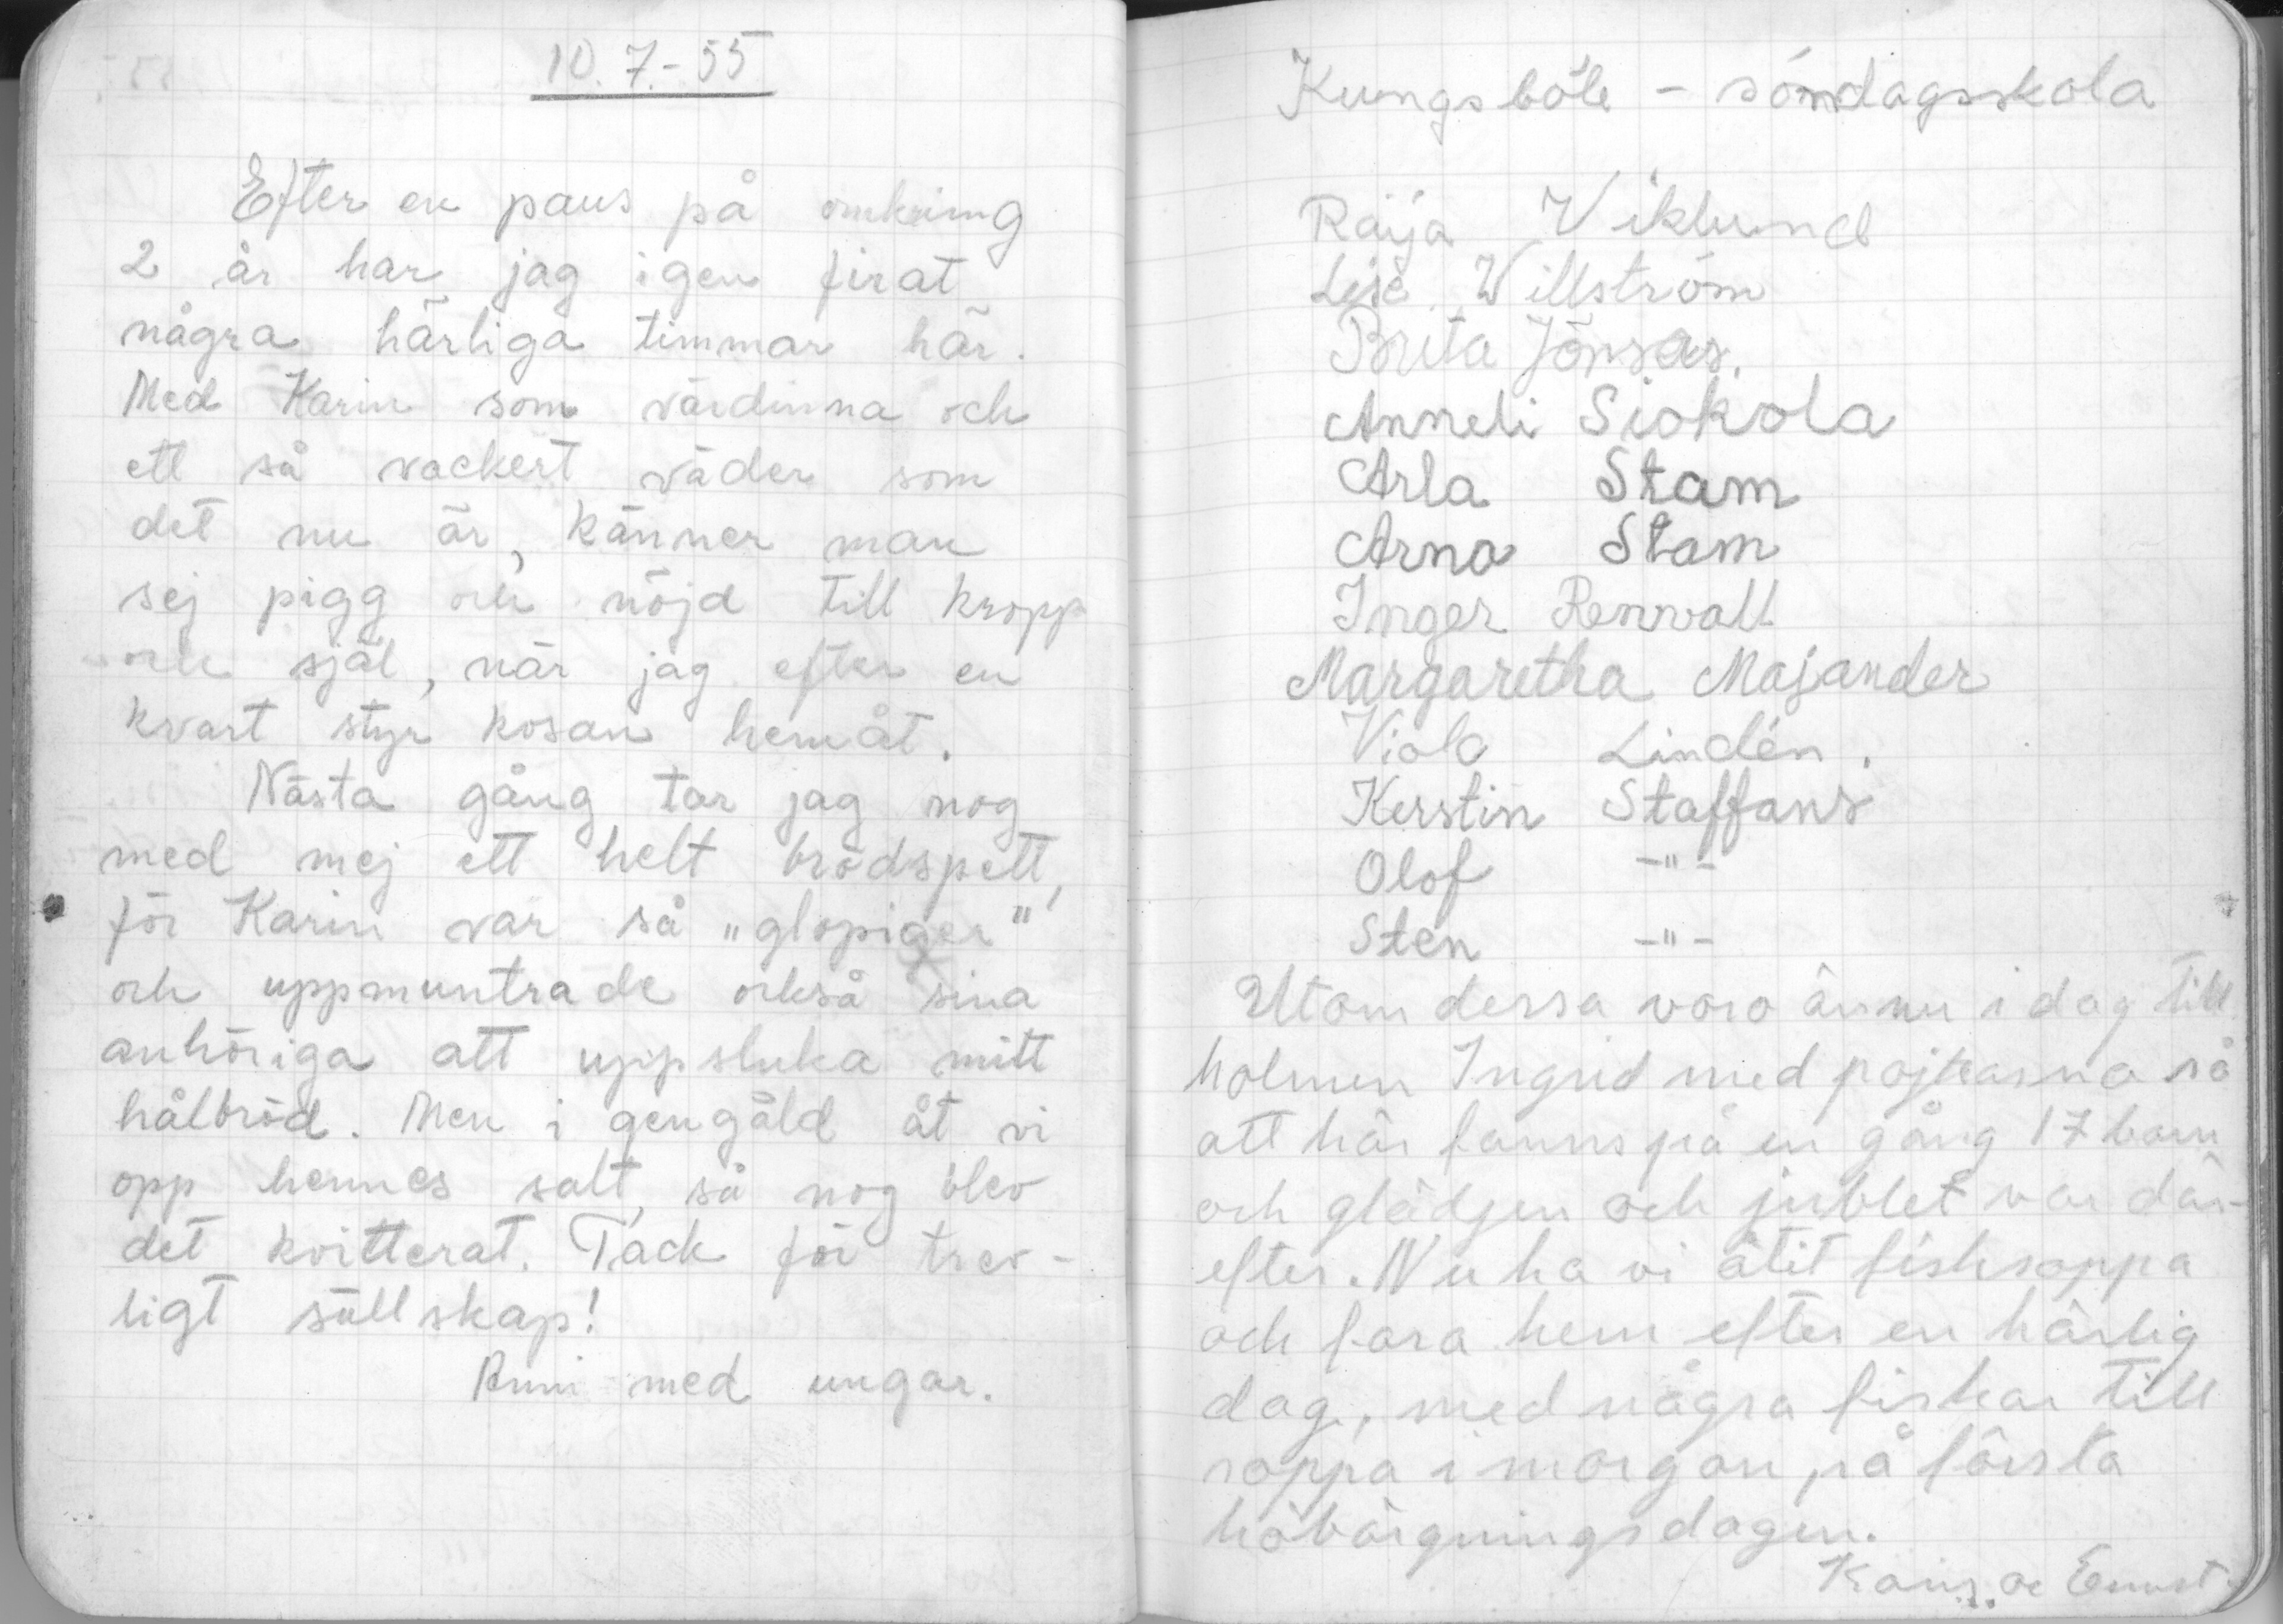 10.7.-55
Efter en paus på omkring
2 år har jag igen firat
några härliga timmar här.
Med Karin som värdinna och
ett så vackert väder som
det nu är, känner man
sej pigg och nöjd till kropp
och själ, när jag efter en
kvart styr kosan hemåt.
Nästa gång tar jag nog
med mej ett helt brödspett,
för Karin var så „glopiger"
och uppmuntrade också sina
anhöriga att uppsluka mitt
hålbröd. Men i gengäld åt vi
opp hennes salt, så nog blev
det kvitterat. Tack för trev-
ligt sällskap!
med ungar.
Kungsböle - söndagsskola
Raija Viklund
Lise Willström
Brita Jönsas.
Anneli Siokola
Arla Stam
Arna Stam
Inger Renvall
Margaretha Majander
Viola Lindén.
Kerstin Staffans
Olof -"-
Sten -"-
Utom dessa voro ännu i dag till
holmen Ingrid med pojkarna så
att här fanns på en gång 17 barn
och glädjen och jublet var där-
efter. Nu ha vi ätit fisksoppa
och fara hem efter en härlig
dag, med några fiskar till
soppa i morgon på första
höbärgningsdagen.
Karin o Ernst